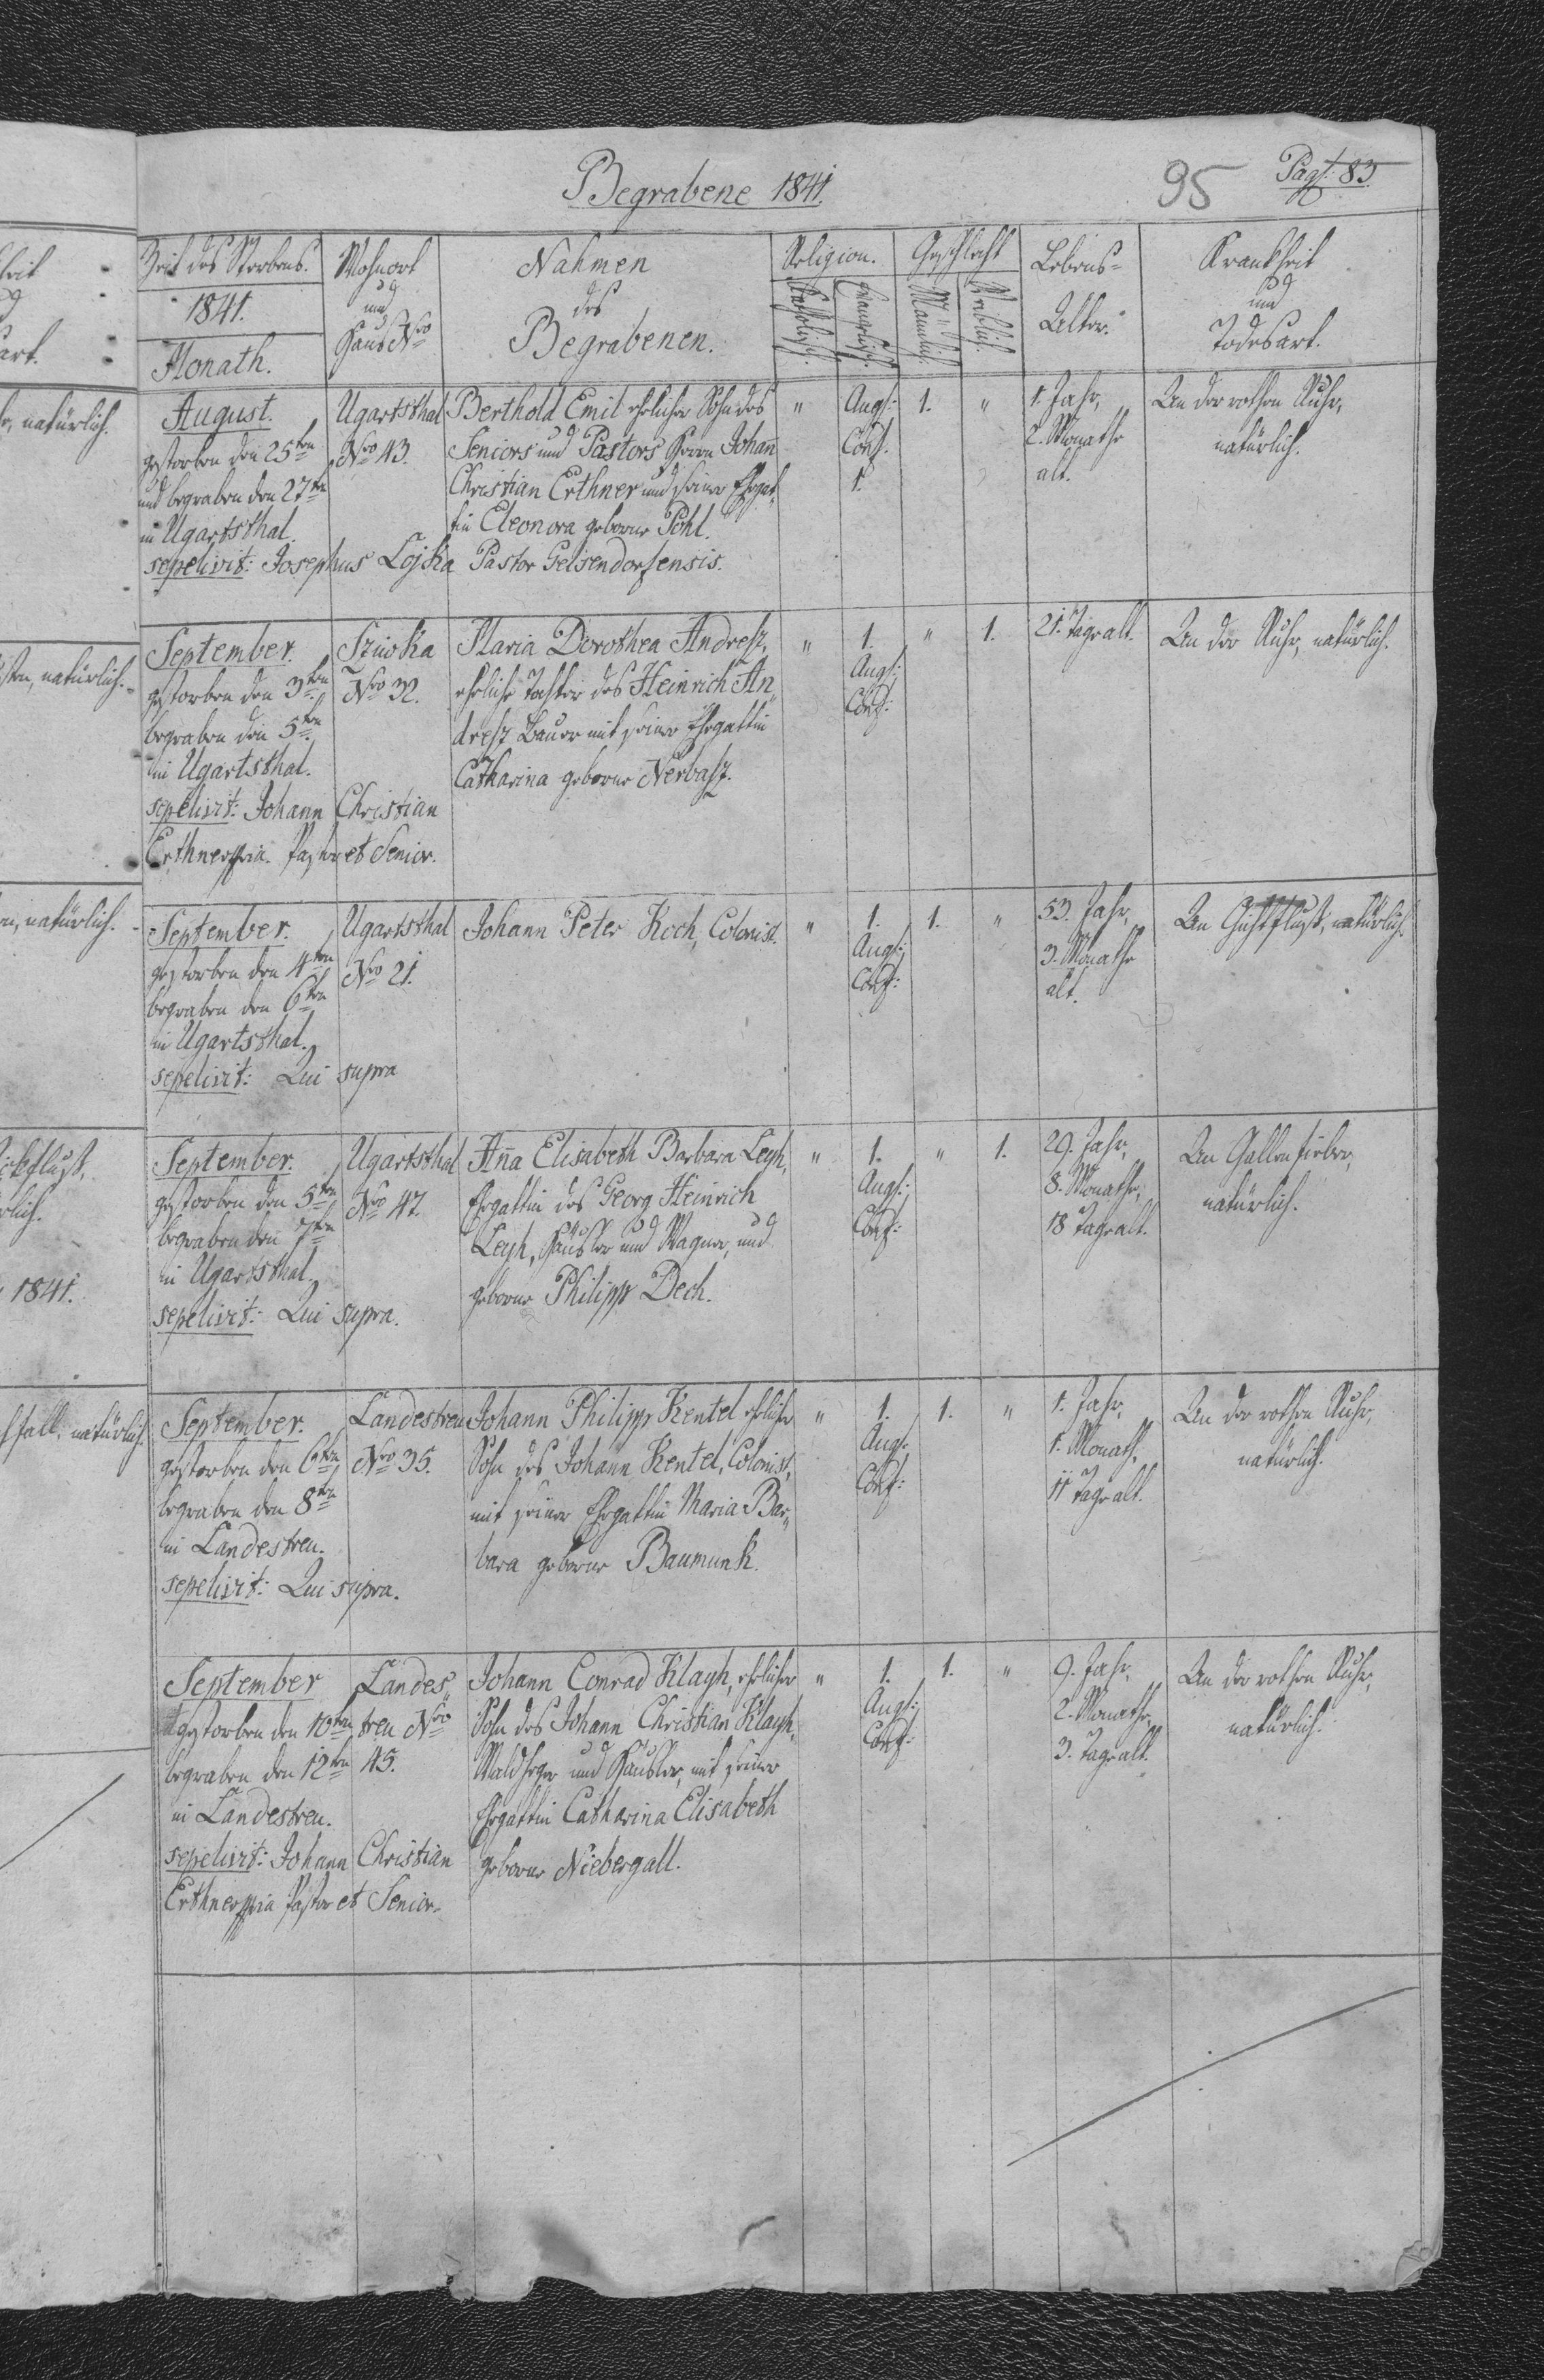 Begrabene 1841.
95
Pag: 83.
Zeit des Sterbens.
1841.
Monath.
Wohnort
und
Haus Nro
Nahmen
des
Begrabenen.
Religion.
Katholisch.
Evangelisch.
Geschlecht
Mänlich.
Weiblich.
Lebens-
Alter.
Krankheit
und
Todesart.
August.
gestorben den 25ten
und begraben den 27ten
in Ugartsthal.
sepelivit: Josephus Lojka Pastor Gelsendorfensis.
Ugartsthal
Nro 43.
Berthold Emil ehelicher Sohn des
Seniors und Pastors Herrn Johan̄
Christian Erthner und seiner Ehegat„
tin Eleonora geborne Pohl.
"
Augs:
Conf.
1.
1.
"
1. Jahr,
2. Monathe
alt.
An der rothen Ruhr,
natürlich.
September.
gestorben den 3ten
begraben den 5ten
in Ugartsthal.
sepelivit: Johann Christian
Erthner mpria. Pastor et Senior.
Sziwka
Nro 32.
Maria Dorothea Andresz,
eheliche Tochter des Heinrich An„
dresz Bauer mit seiner Ehegattin
Catharina geborne Nerbasz.
"
1.
Augs:
Conf:
"
1.
21. Tage alt.
An der Ruhr, natürlich.
September.
gestorben den 4ten
begraben den 6ten
in Ugartsthal.
sepelivit: Qui supra
Ugartsthal
Nro 21.
Johann Peter Koch, Colonist.
"
1.
Augs:
Conf:
1.
"
53. Jahr,
3. Monathe
alt.
An Gichtfluß, natürlich.
September.
gestorben den 5ten
begraben den 7ten
in Ugartsthal.
sepelivit: Qui supra.
Ugartsthal
Nro 47.
An̄a Elisabeth Barbara Leyh,
Ehegattin des Georg Heinrich
Leyh, Häusler und Wagner, und
geborne Philipp Dech.
"
1.
Augs:
Conf:
"
1.
29. Jahr,
8. Monathe,
18 Tage alt.
An Gallenfieber,
natürlich.
September.
gestorben den 6ten
begraben den 8ten
in Landestreu.
sepelivit: Qui supra.
Landestreu
Nro 35.
Johann Philipp Kentel ehelicher
Sohn des Johann Kentel, Colonist,
mit seiner Ehegattin Maria Bar„
bara geborne Baumunk.
"
1.
Augs:
Conf:
1.
"
1. Jahr,
1. Monath,
11 Tage alt.
An der rothen Ruhr,
natürlich.
September
gestorben den 10ten
begraben den 12ten
in Landestreu.
sepelivit: Johann Christian
Erthner mpria Pastor et Senior.
Landes„
treu Nro
45.
Johann Conrad Klayh, ehelicher
Sohn des Johann Christian Klayh,
Waldheger und Häusler, mit seiner
Ehegattin Catharina Elisabeth
geborne Niebergall.
"
1.
Augs:
Conf:
1.
"
9. Jahr,
2. Monathe,
3. Tage alt.
An der rothen Ruhr,
natürlich.
natürlich.
natürlich.
natürlich.
1841.
natürlich.